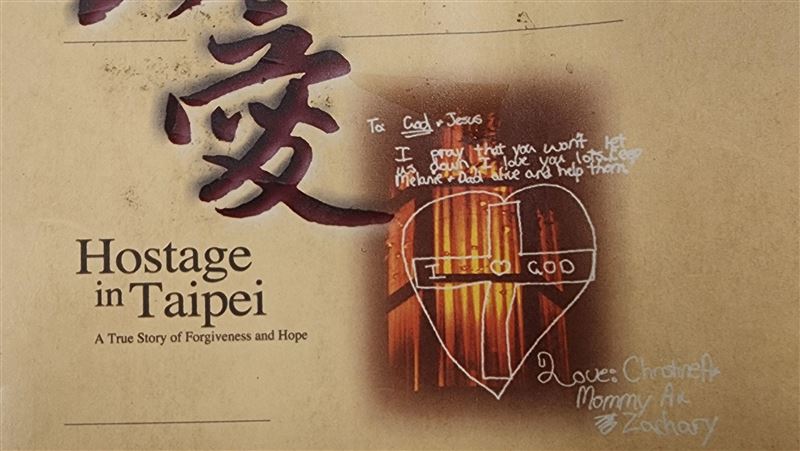 愛
Hostage
in Taipei
A True Story of Forgiveness and Hope
To: God & Jesus
I pray that you won't let
us down I love you lots keep
Melanie & Dad alive and help them
I GOD
Love: Christine A
Mommy A
Zachary